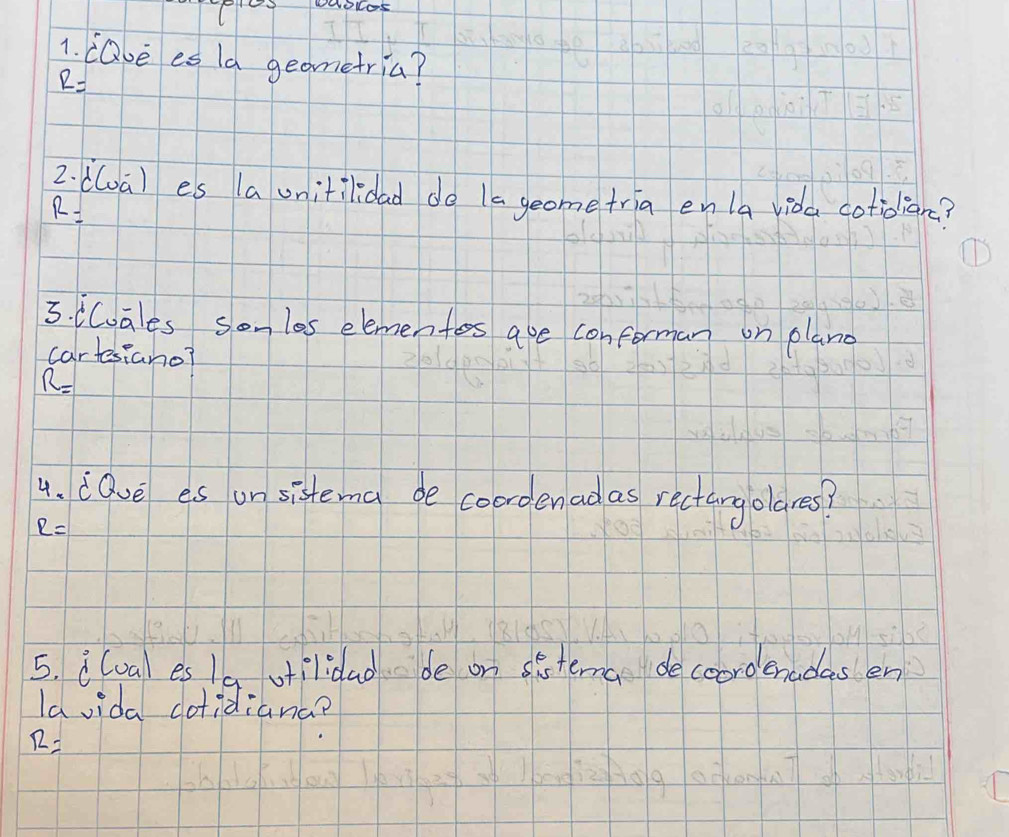 básicos
1. ¿Qué es la geometría?
R=
2. ¿Cuál es la unitilidad de la geometría en la vida cotidiana?
R=
3. ¿Cuáles son los elementos que conforman un plano
cartesiano?
R=
4. ¿Qué es un sistema de coordenadas rectangulares?
R=
5. ¿Cual es la utilidad de un sistema de coordenadas en
la vida cotidiana?
R=